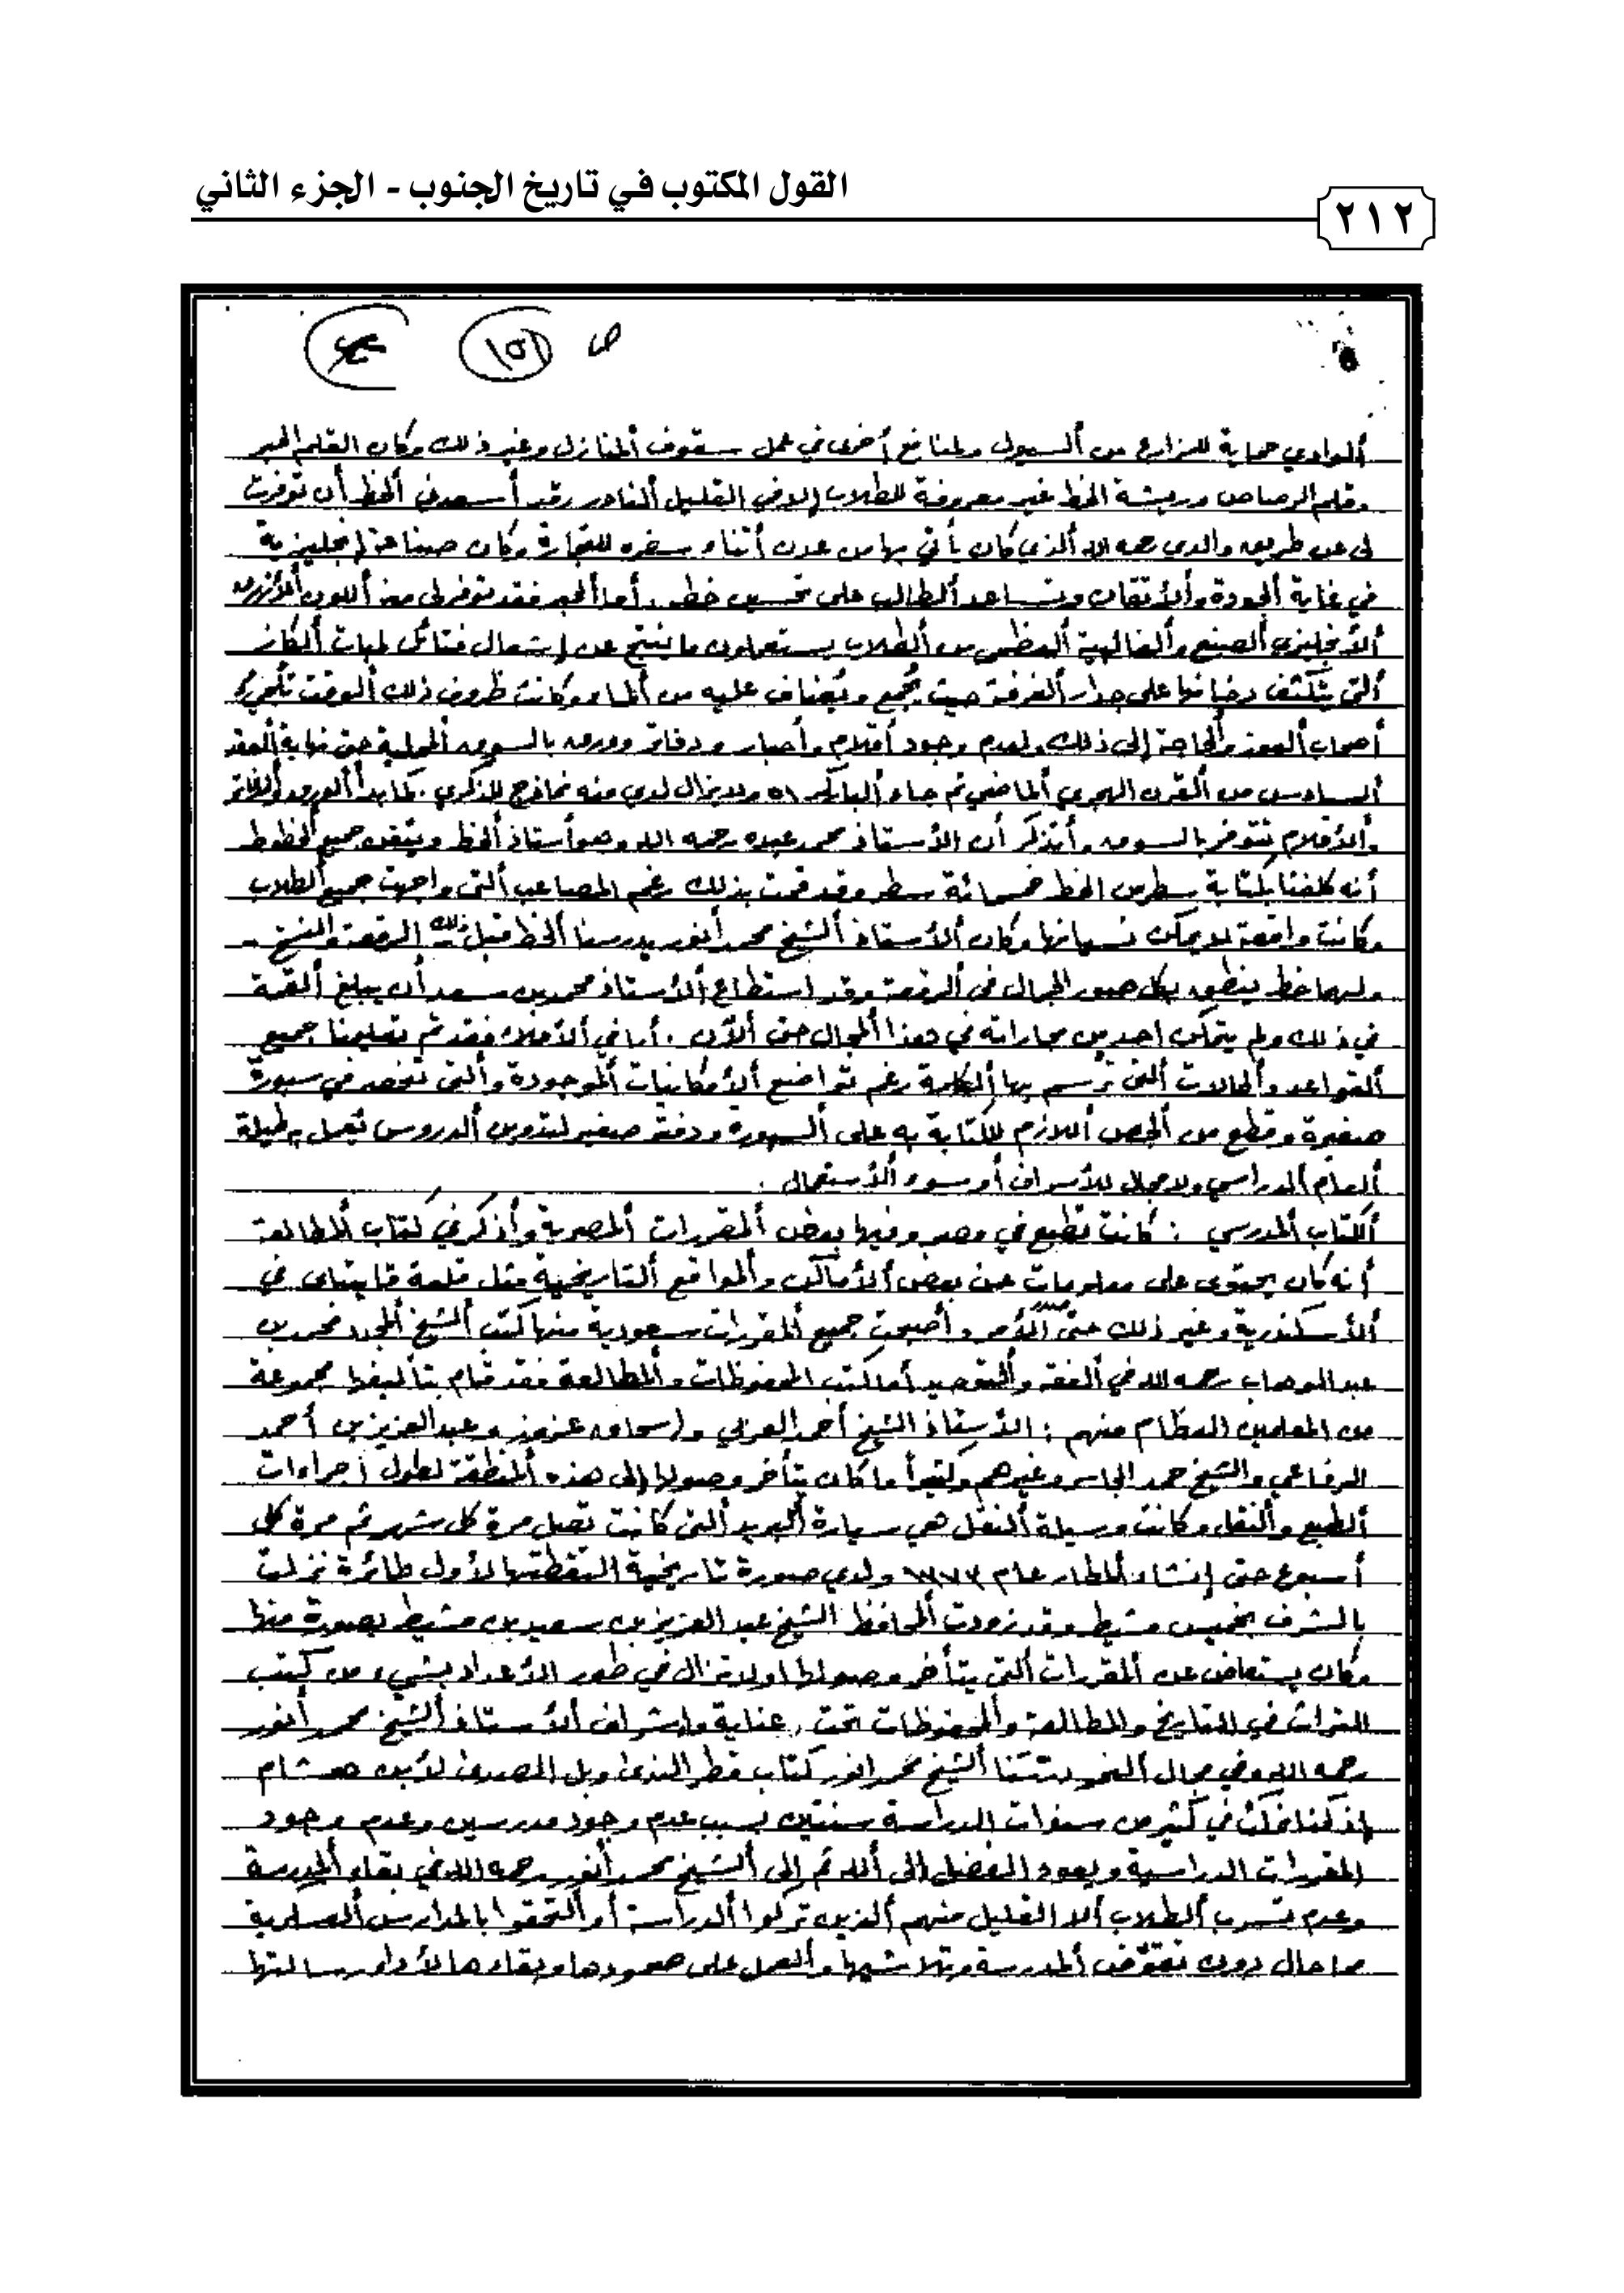 القول المكتوب في تاريخ الجنوب - الجزء الثاني
٢١٢
ص (١٥١)
ألوادي حماية للمزارع من ألسيول ولمنافع أخرى في عمل سقوف ألمنازل وغير ذلك وكان القلم الحبر
وقلم الرصاص وريشة الخط غير معروفة للطلاب إلا في القليل ألنادر وقد أسعدني ألحظ أن توفرت
لي عن طريق والدي رحمه الله ألذي كان يأتي بها من عدن أثناء سفره للتجارة وكان صناعة إنجليزية
في غاية ألجودة وألأتقان وتساعد ألطالب على تحسين خطه. أما ألحبر فقد توفر لي منه أللون ألأزرق
ألأنجليزي ألصنع وألغالبية ألعظمى من ألطلاب يستعملون ما ينتج عن إشتعال فتائل لمبات ألكاز
ألتي يتكثف دخانها على جدار ألغرفة حيث يُجمع ويُضاف عليه من ألماء وكانت ظروف ذلك ألوقت تُلجئ
أصحاب ألعوز وألحاجة إلى ذلك ولعدم وجود أقلام وأحبار ودفاتر وورق بالسوق ألمحلية حتى نهاية ألعقد
ألسادس من ألقرن الهجري ألماضي ثم جاء ألباركر ٥١ ولا يزال لدي منه نماذج للذكرى. كما بدأ ألورق وألدفاتر
وألأقلام تتوفر بالسوق وأتذكر أن الأستاذ محمد عبده رحمه الله وهو أستاذ ألخط ويتقن جميع ألخطوط
أنه كلفنا بكتابة سطر من الخط خمسمائة سطر وقد قمت بذلك رغم المصاعب ألتي واجهت جميع ألطلاب
وكانت واقعة لا يمكن نسيانها وكان ألأستاذ ألشيخ محمد أنور يدرسنا ألخط قبل ذلك الرقعة والنسخ -
ولهما خط ينطق بكل صور الجمال في ألرقعة وقد إستطاع ألأستاذ محمد بن سعد أن يبلغ ألقمة
في ذلك ولم يتمكن احد من مجاراته في هذا ألمجال حتى ألآن. أما في ألأملاء فقد تم تعليمنا جميع
ألقواعد وألحالات ألتي تُرسم بها ألكلمة رغم تواضع ألأمكانيات ألموجودة وألتي تنحصر في سبورة
صغيرة وقطع من ألجص أللازم للكتابة به على ألسبورة ودفتر صغير لتدوين ألدروس يُعمل به طيلة
ألعام ألدراسي ولا مجال للأسراف أو سوء ألأستعمال.
ألكتاب ألمدرسي : كانت تطبع في مصر وفيها بعض ألمقررات ألمصرية وأذكر في كتاب ألمطالعة
أنه كان يحتوي على معلومات عن بعض ألأماكن وألمواقع ألتاريخية مثل قلعة قايتباى في
ألأسكندرية وغير ذلك حتى وأصبحت جميع ألمقررات سعودية منها كتب ألشيخ ألمجدد محمد بن
عبدالوهاب رحمه الله في ألفقه وألتوحيد أما كتب المحفوظات وألمطالعة فقد قام بتأليفها مجموعة
من المعلمين العظام منهم : الأستاذ الشيخ أحمد العربي وإسحاق عزوز وعبدالعزيز بن أحمد
الرفاعي والشيخ حمد الجاسر وغيرهم وكثيراً ما كان يتأخر وصولها إلى هذه ألمنطقة لطول أجراءات
ألطبع وألنقل وكانت وسيلة ألنقل هي سيارة ألبريد ألتي كانت تصل مرة كل شهر ثم مرة كل
أسبوع حتى إنشاء ألمطار عام ولدي صورة تاريخية التقطتها لأول طائرة نزلت
بالمشرف بخميس مشيط وقد زودت ألمحافظ الشيخ عبدالعزيز بن سعيد بن مشيط بصورة منها
وكان يستعاض عن ألمقررات ألتي يتأخر وصولها او لا تزال في طور الأعداد بشيء من كتب
التراث في التاريخ والمطالعة وألمحفوظات تحت عناية وإشراف ألأستاذ ألشيخ محمد أنور
رحمه الله وفي مجال ألنحو ألشيخ محمد انور كتاب قطر الندى وبل الصدى لأبن هشام
إذ كنا في كثير من سنوات الدراسة سنتين بسبب عدم وجود مدرسين وعدم وجود
المقررات الدراسية ويعود الفضل إلى ألله ثم إلى ألشيخ محمد أنور رحمه الله في بقاء ألمدرسة
وعدم تسرب ألطلاب ألا القليل منهم ألذين تركوا ألدراسة أو ألتحقوا بالمدارس ألعسكرية
مما حال دون تقوّض ألمدرسة وتلاشيها وألعمل على صمودها وبقاءها لأداء رسالتها